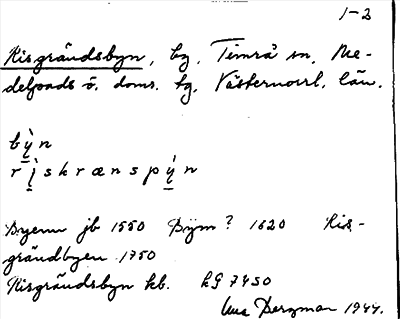 1-2
Risgrändsbyn, by, Timrå sn, Me-
delpads ö. doms. tg, Västernorrl. län.
bỳn
rìskrænspýn
Byenn jb 1550 Bym? 1620 Ris-
grändbyen 1750
Risgrändsbyn kb. kg 7450
Una Bergman 1944.